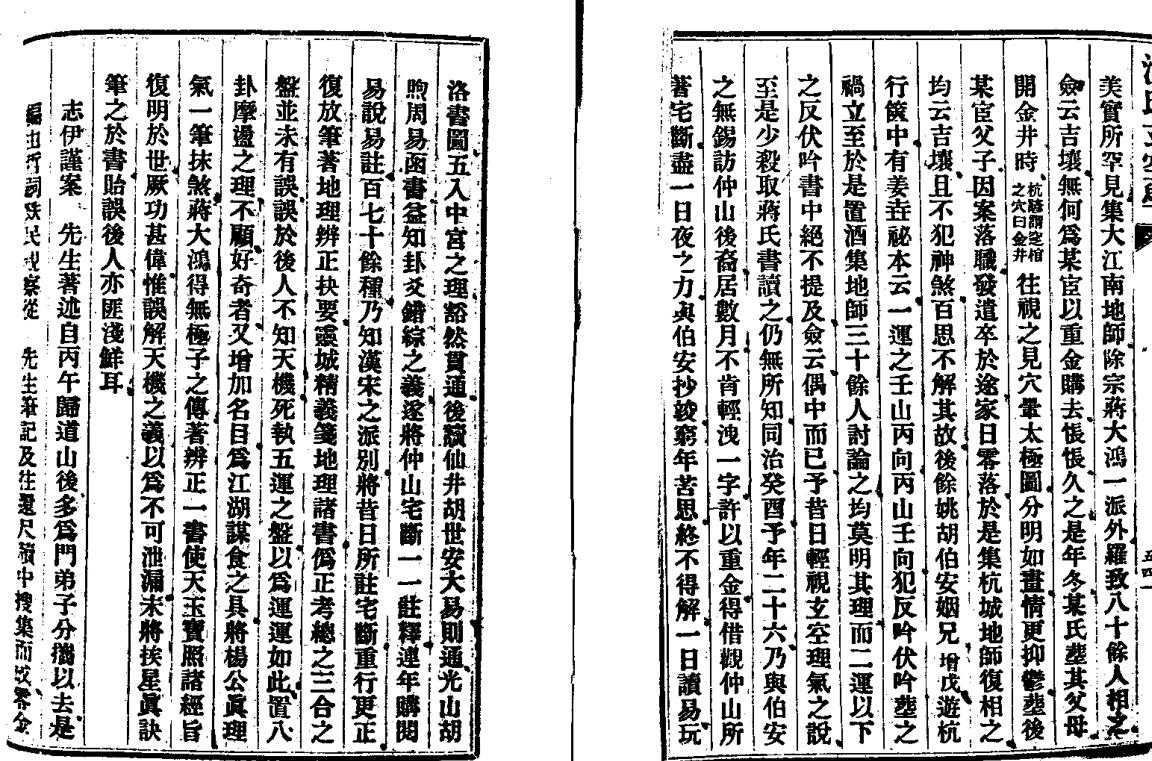 美實所罕見集大江南地師除宗蔣大鴻一派外羅致八十餘人相之
僉云吉壤無何爲某宦以重金購去悵悵久之是年冬某氏塟其父母
開金井時杭諺謂窆棺之穴曰金井往視之見穴暈太極圖分明如畫情更抑鬱塟後
某宦父子因案落職發遣卒於途家日零落於是集杭城地師復相之
均云吉壤且不犯神煞百思不解其故後餘姚胡伯安姻兄增戊遊杭
行篋中有姜垚祕本云一運之壬山丙向丙山壬向犯反吟伏吟塟之
禍立至於是置酒集地師三十餘人討論之均莫明其理而二運以下
之反伏吟書中絕不提及僉云偶中而已予昔日輕視玄空理氣之說
至是少殺取蔣氏書讀之仍無所知同治癸酉予年二十六乃與伯安
之無錫訪仲山後裔居數月不肯輕洩一字許以重金得借觀仲山所
著宅斷盡一日夜之力與伯安抄竣窮年苦思終不得解一日讀易玩
洛書圖五入中宮之理豁然貫通後讀仙井胡世安大易則通光山胡
煦周易函書益知卦爻錯綜之義遂將仲山宅斷一一註釋連年購閱
易說易註百七十餘種乃知漢宋之派別將昔日所註宅斷重行更正
復放筆著地理辨正抉要靈城精義箋地理諸書僞正考總之三合之
盤並未有誤誤於後人不知天機死執五運之盤以爲運運如此置八
卦摩盪之理不顧好奇者又增加名目爲江湖謀食之具將楊公眞理
氣一筆抹煞蔣大鴻得無極子之傳著辨正一書使天玉寶照諸經旨
復明於世厥功甚偉惟誤解天機之義以爲不可泄漏未將挨星眞訣
筆之於書貽誤後人亦匪淺鮮耳
志伊謹案 先生著述自丙午歸道山後多爲門弟子分攜以去是
編由 民 察從 先生筆記及往還尺牘中搜集而 零金